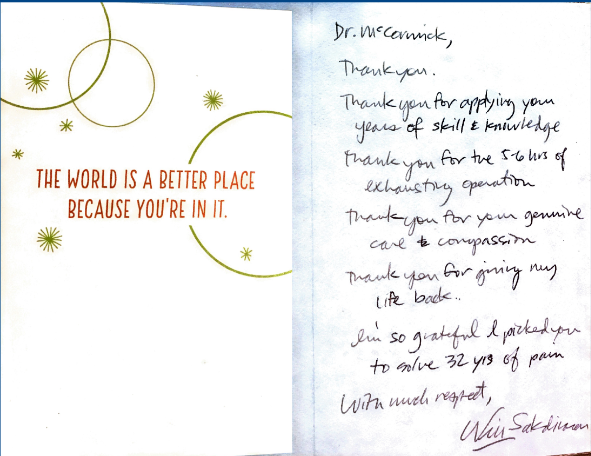 THE WORLD IS A BETTER PLACE
BECAUSE YOU'RE IN IT.
Dr. McCormick,
Thank you.
Thank you for applying your
years of skill & knowledge
Thank you for the 5-6 hrs of
exhausting operation
Thank you for your genuine
care & compassion
Thank you for giving my
life back..
I'm so grateful I picked you
to solve 32 yrs of pain
With much respect,